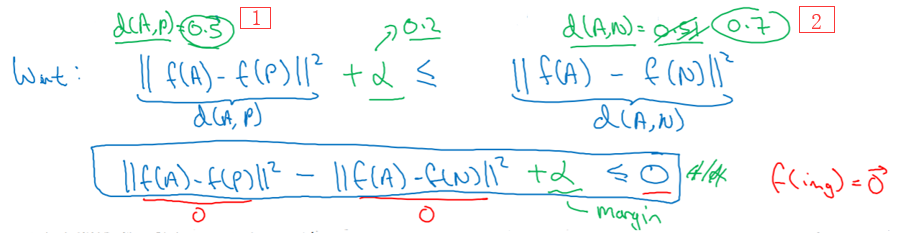 d(A,P) = 0.5 1 0.2 d(A,N) = 0.51 0.7 2
Want: ||f(A) - f(P)||² + α ≤ ||f(A) - f(N)||²
d(A,P) d(A,N)
||f(A) - f(P)||² - ||f(A) - f(N)||² + α ≤ 0 f(img) = 0⃗
0 0 margin